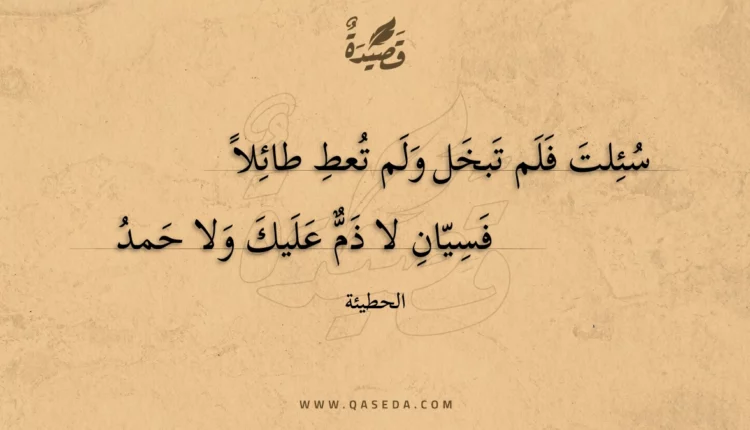 قَصِيْدَةٌ
سُئِلتَ فَلَم تَبخَل وَلَم تُعطِ طائِلاً
فَسِيّانِ لا ذَمٌّ عَلَيكَ وَلا حَمدُ
الحطيئة
WWW.QASEDA.COM